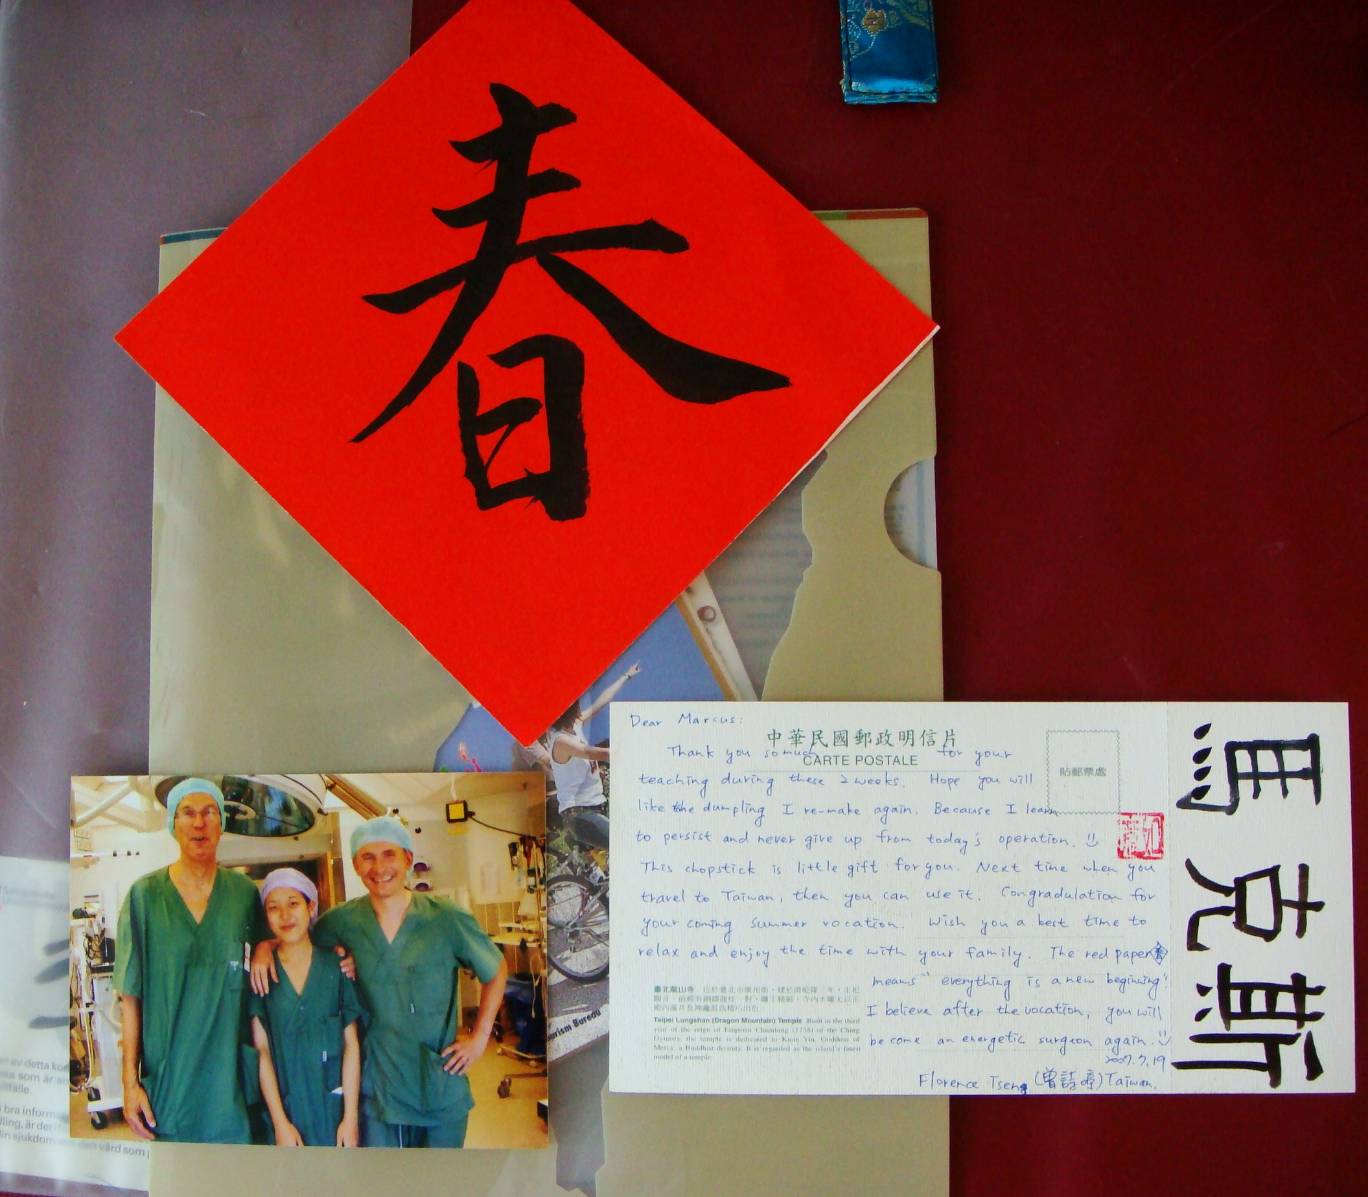 春
Dear Marcus:
中華民國郵政明信片
CARTE POSTALE
貼郵票處
Thank you so much for your
teaching during these 2 weeks. Hope you will
like the dumpling I re-make again. Because I learn
to persist and never give up from today's operation.
This chopstick is little gift for you. Next time when you
travel to Taiwan, then you can use it. Congradulation for
your coming summer vocation. Wish you a best time to
relax and enjoy the time with your family. The red paper 春
means "everything is a new beginning"
I believe after the vocation, you will
become an energetic surgeon again.
2007.7.19
Florence Tseng (曾詩尋) Taiwan.
馬克斯
臺北龍山寺
Taipei Lungshan (Dragon Mountain) Temple Built in the third
year of the reign of Emperor Chienlung (1738) of the Ching
Dynasty, the temple is dedicated to Kuan Yin, Goddess of
Mercy, a Buddhist deity. It is regarded as the island's finest
model of a temple.
ourism Bureau
en av detta
som är
ställe.
bra inform
dling, är det
din sjukdom vård som